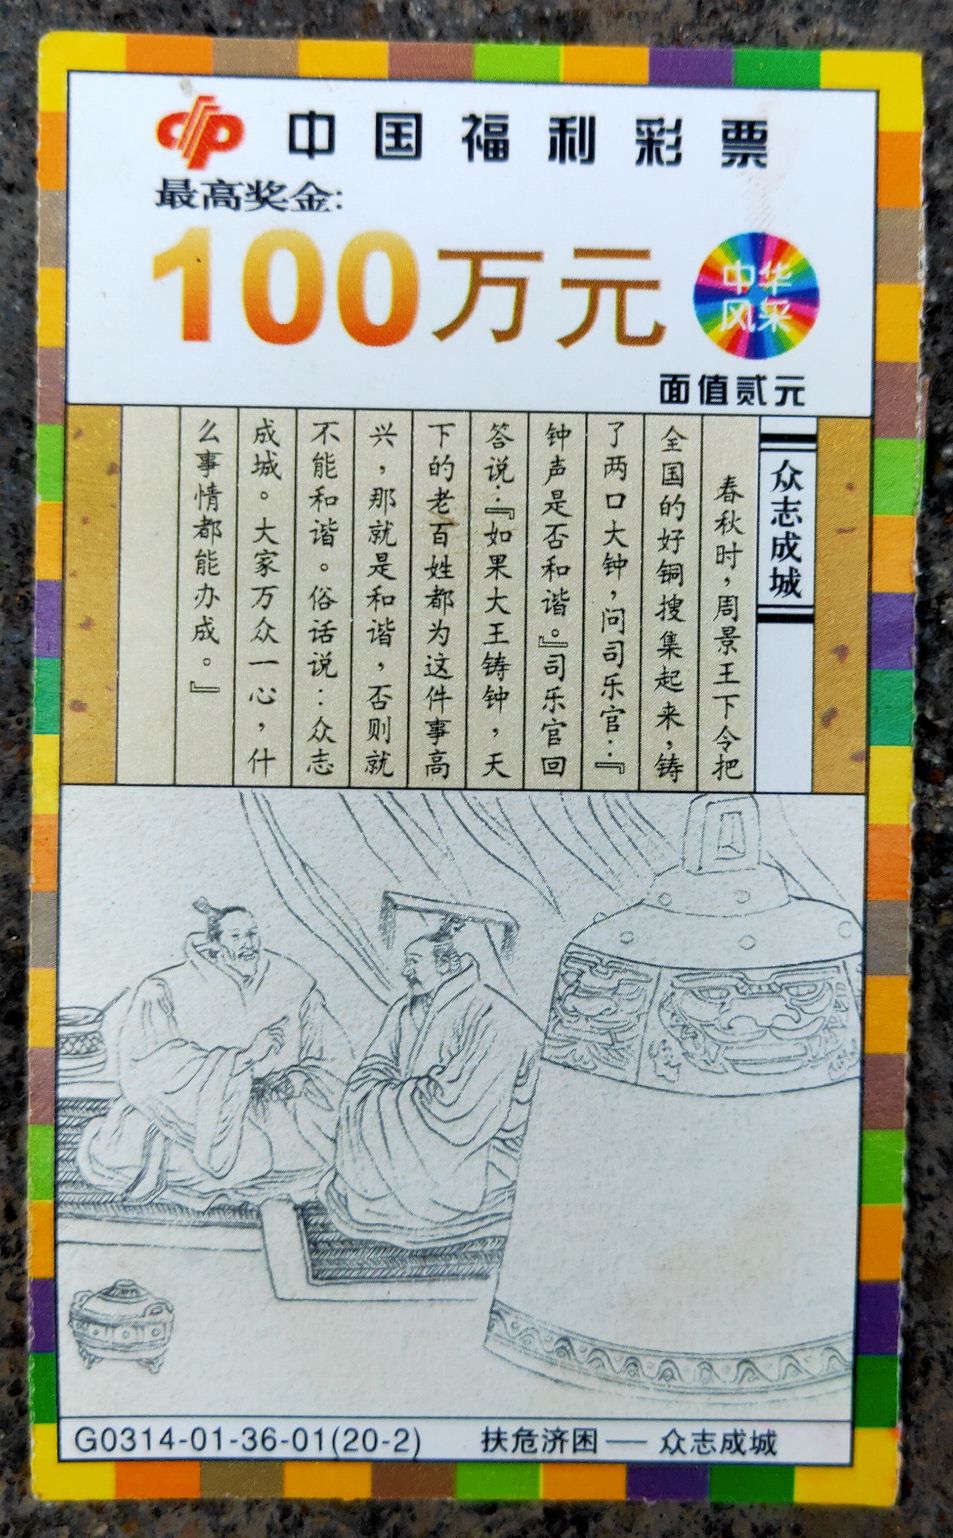 中国福利彩票
最高奖金:
100万元
中华
风采
面值贰元
众志成城
春秋时，周景王下令把
全国的好铜搜集起来，铸
了两口大钟，问司乐官：『
钟声是否和谐。』司乐官回
答说：『如果大王铸钟，天
下的老百姓都为这件事高
兴，那就是和谐，否则就
不能和谐。俗话说：众志
成城。大家万众一心，什
么事情都能办成。』
G0314-01-36-01(20-2) 扶危济困——众志成城